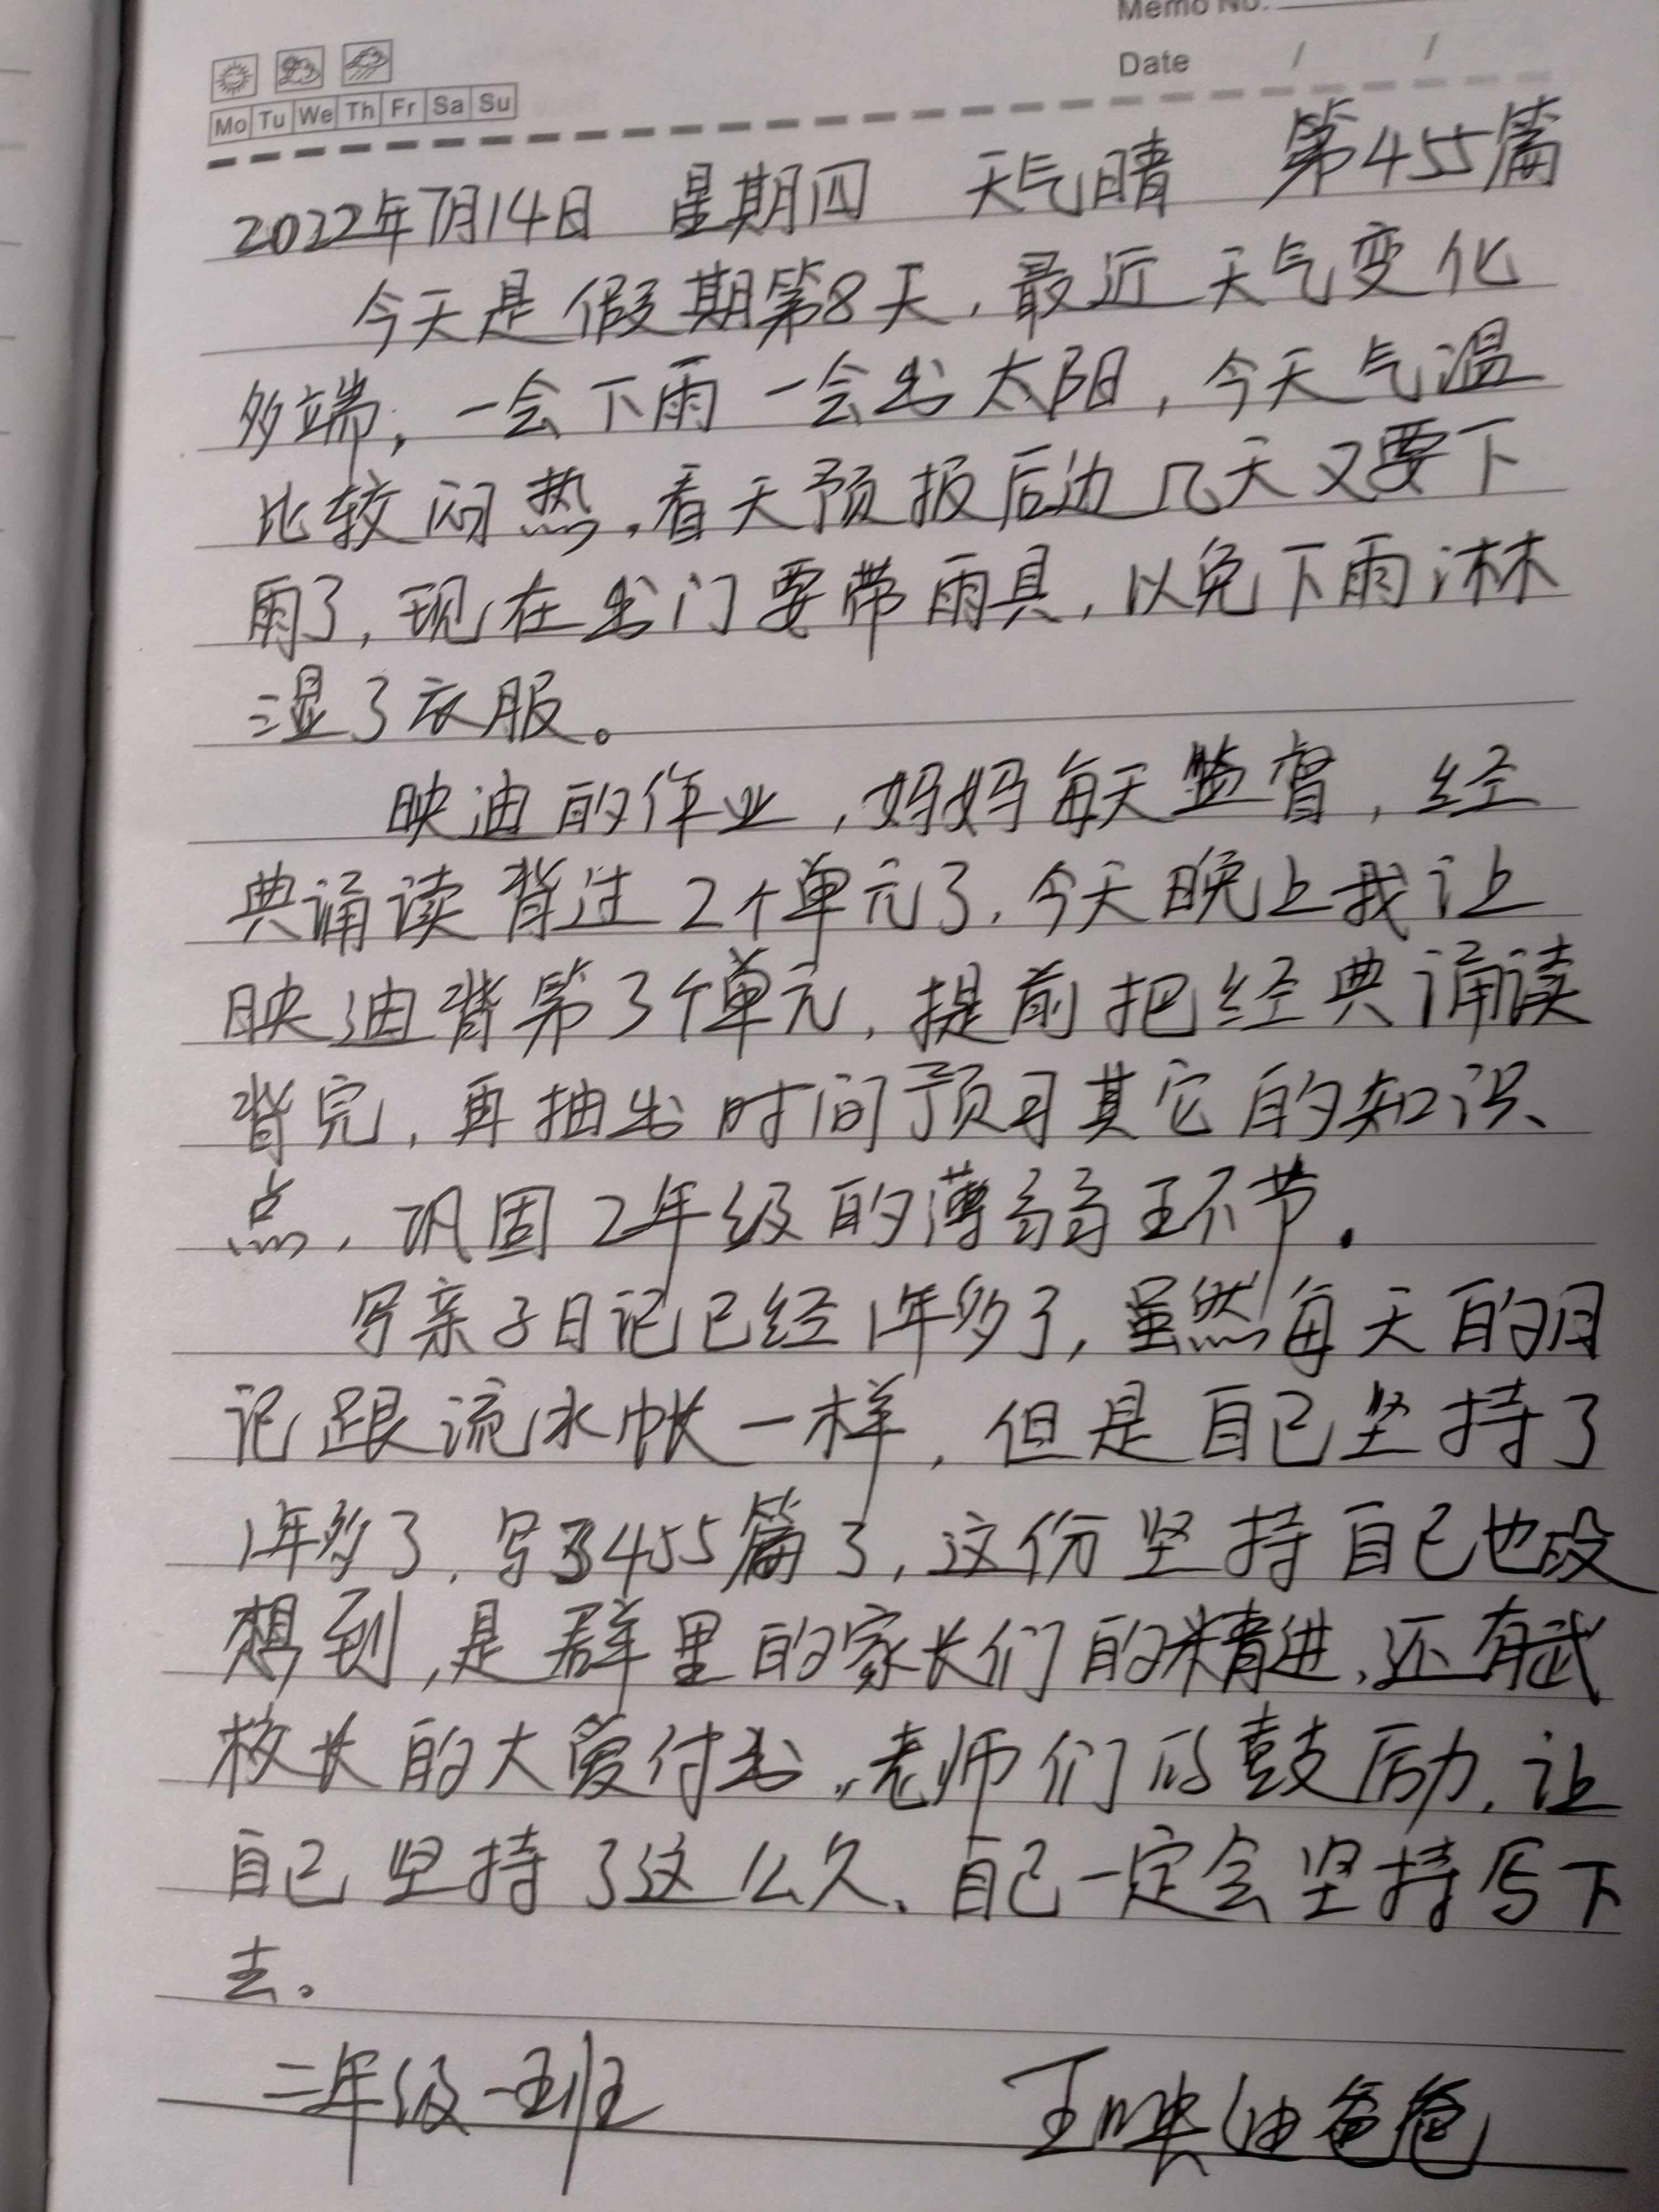 Memo No.
Date / /
Mo Tu We Th Fr Sa Su
2022年7月14日 星期四 天气晴 第455篇
今天是假期第8天,最近天气变化
多端,一会下雨一会出太阳,今天气温
比较闷热,看天预报后边几天又要下
雨了,现在出门要带雨具,以免下雨淋
湿了衣服。
映迪的作业,妈妈每天监督,经
典诵读背过2个单元了,今天晚上我让
映迪背第3个单元,提前把经典诵读
背完,再抽出时间预习其它的知识
点,巩固2年级的薄弱环节.
写亲子日记已经1年多了,虽然每天的日
记跟流水帐一样,但是自己坚持了
1年多了,写了455篇了,这份坚持自己也没
想到,是群里的家长们的精进,还有武
校长的大爱付出,老师们的鼓励,让
自己坚持了这么久、自己一定会坚持写下
去。
二年级一班 王映迪爸爸